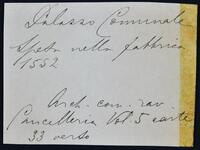 Palazzo Comunale
Spesa nella fabbrica
1552
Arch. com. rav
Cancelleria Vol. 5 carte
33 verso